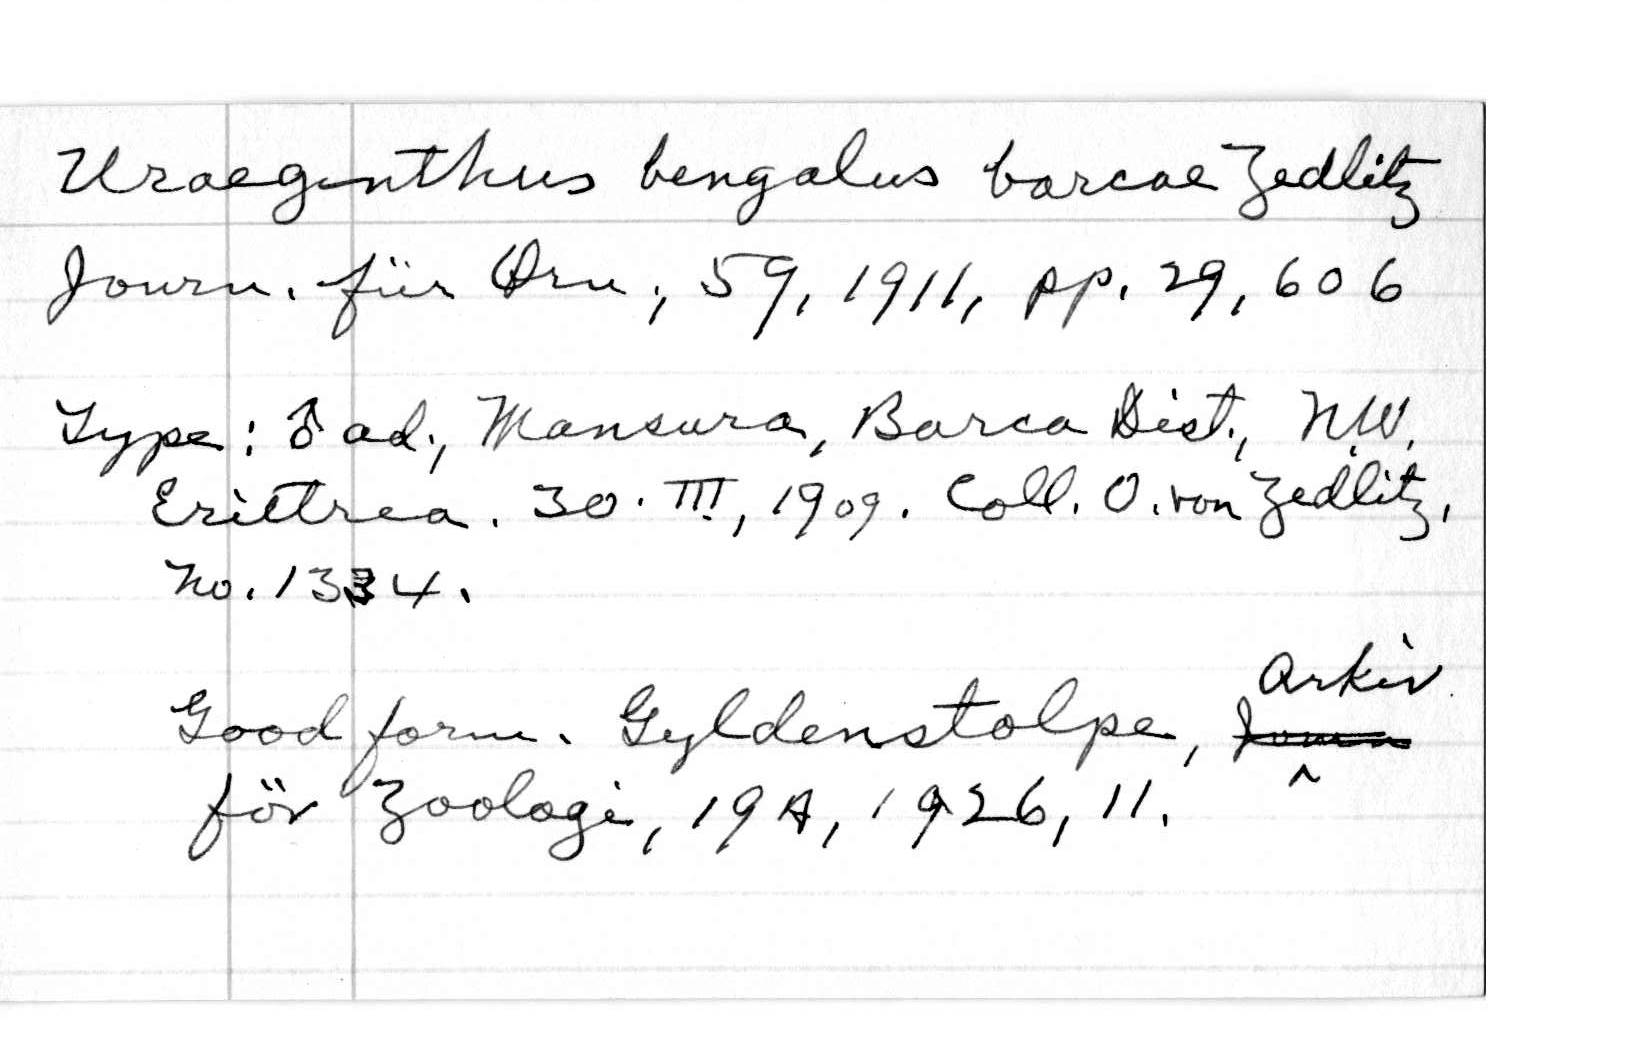 Uraeginthus bengalus barcae Zedlitz
Journ. für Orn., 59, 1911, pp. 29, 606
Type: ♂ ad., Mansura, Barca Dist., N.W.
Erittrea. 30. III, 1909. Coll. O. von Zedlitz,
No. 1334.
Arkiv
Good form. Gyldenstolpe, Journ
för Zoologi, 19A, 1926, 11.